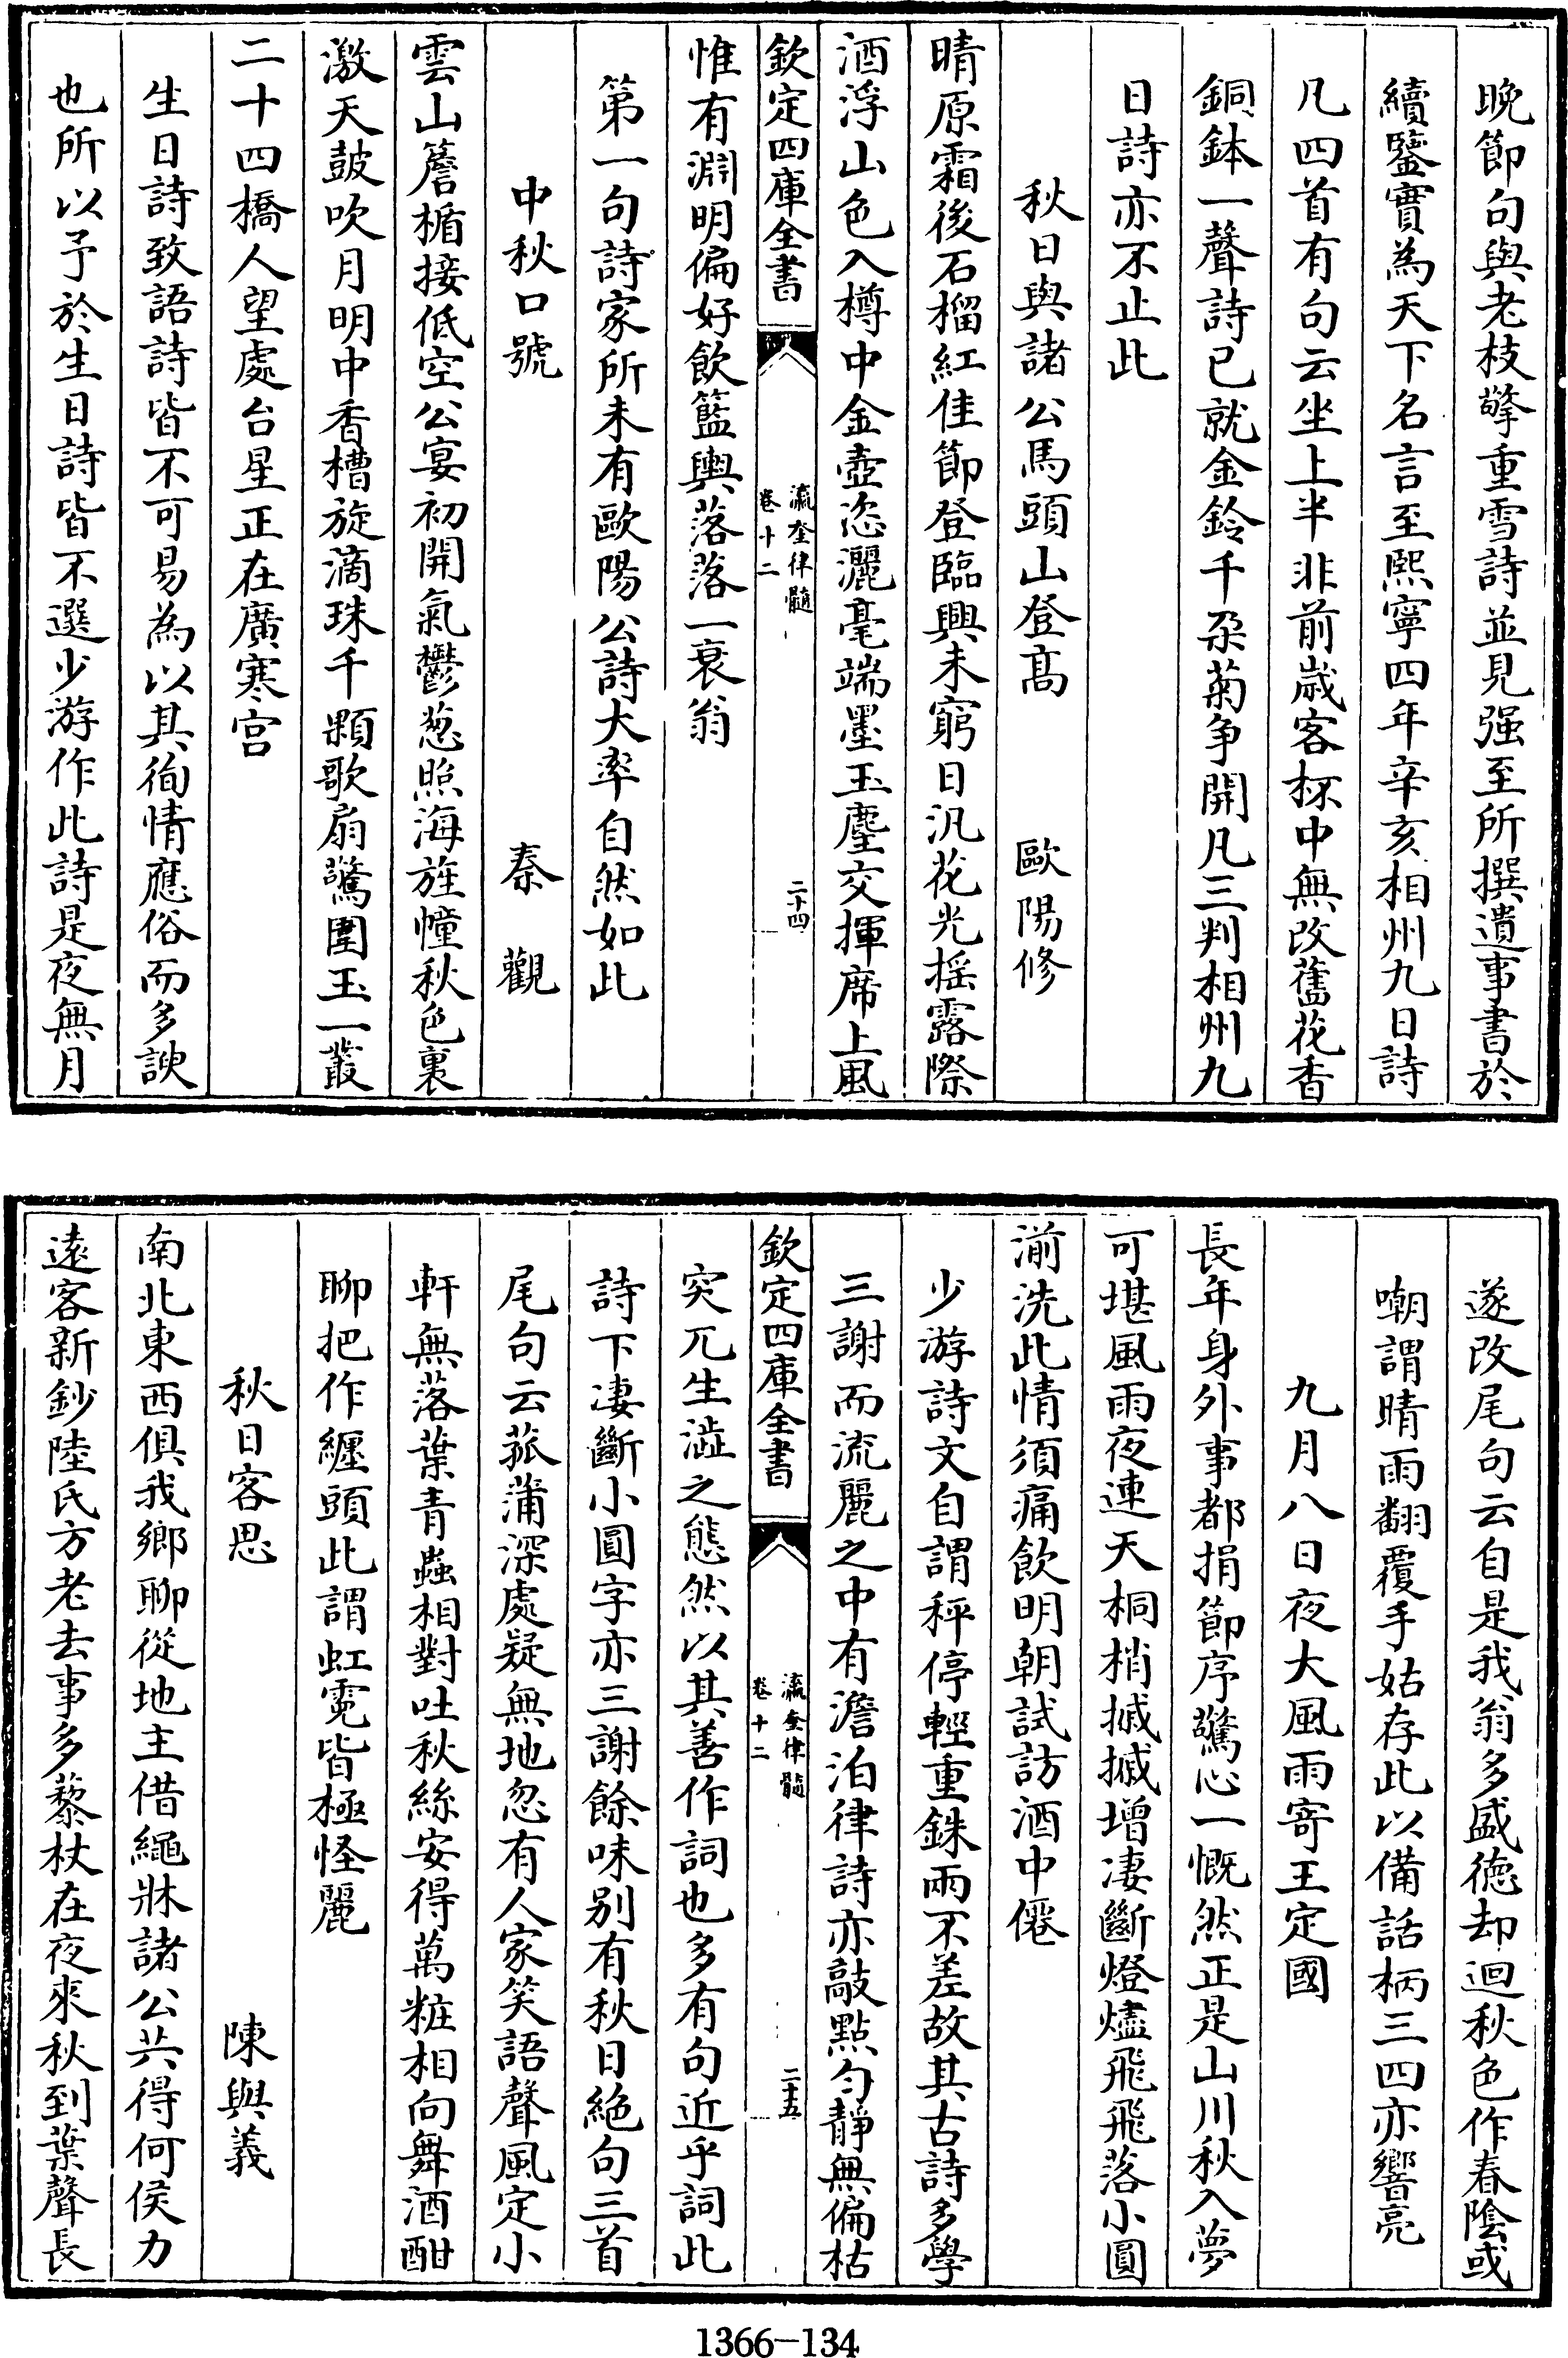 晚節句與老枝擎重雪詩並見强至所撰遺事書於
續鑒實為天下名言至熙寧四年辛亥相州九日詩
凡四首有句云坐上半非前嵗客杯中無改舊花香
銅鉢一聲詩已就金鈴千朶菊爭開凡三判相州九
日詩亦不止此
秋日與諸公馬頭山登髙 歐陽修
晴原霜後石榴紅佳節登臨興未窮日汎花光摇露際
酒浮山色入樽中金壺恣灑毫端墨玉麈交揮席上風
欽定四庫全書 瀛奎律髓 卷十二 二十四
惟有淵明偏好飲籃輿落落一衰翁
第一句詩家所未有歐陽公詩大率自然如此
中秋口號 秦觀
雲山簷楯接低空公宴初開氣鬱葱照海旌幢秋色裏
激天鼓吹月明中香槽旋滴珠千顆歌扇驚圍玉一叢
二十四橋人望處台星正在廣寒宫
生日詩致語詩皆不可易為以其徇情應俗而多諛
也所以予於生日詩皆不選少游作此詩是夜無月
遂改尾句云自是我翁多盛徳却迴秋色作春陰或
嘲謂晴雨翻覆手姑存此以備話柄三四亦響亮
九月八日夜大風雨寄王定國
長年身外事都捐節序驚心一慨然正是山川秋入夢
可堪風雨夜連天桐梢摵摵增凄斷燈燼飛飛落小圓
湔洗此情須痛飲明朝試訪酒中僊
少游詩文自謂秤停輕重銖兩不差故其古詩多學
三謝而流麗之中有澹泊律詩亦敲點匀靜無偏枯
欽定四庫全書 瀛奎律髓 卷十二 二十五
突兀生澁之態然以其善作詞也多有句近乎詞此
詩下凄斷小圓字亦三謝餘味别有秋日絶句三首
尾句云菰蒲深處疑無地忽有人家笑語聲風定小
軒無落葉青蟲相對吐秋絲安得萬粧相向舞酒酣
聊把作纏頭此謂虹霓皆極怪麗
秋日客思 陳與義
南北東西俱我鄉聊從地主借繩牀諸公共得何侯力
遠客新鈔陸氏方老去事多藜杖在夜來秋到葉聲長
1366-134